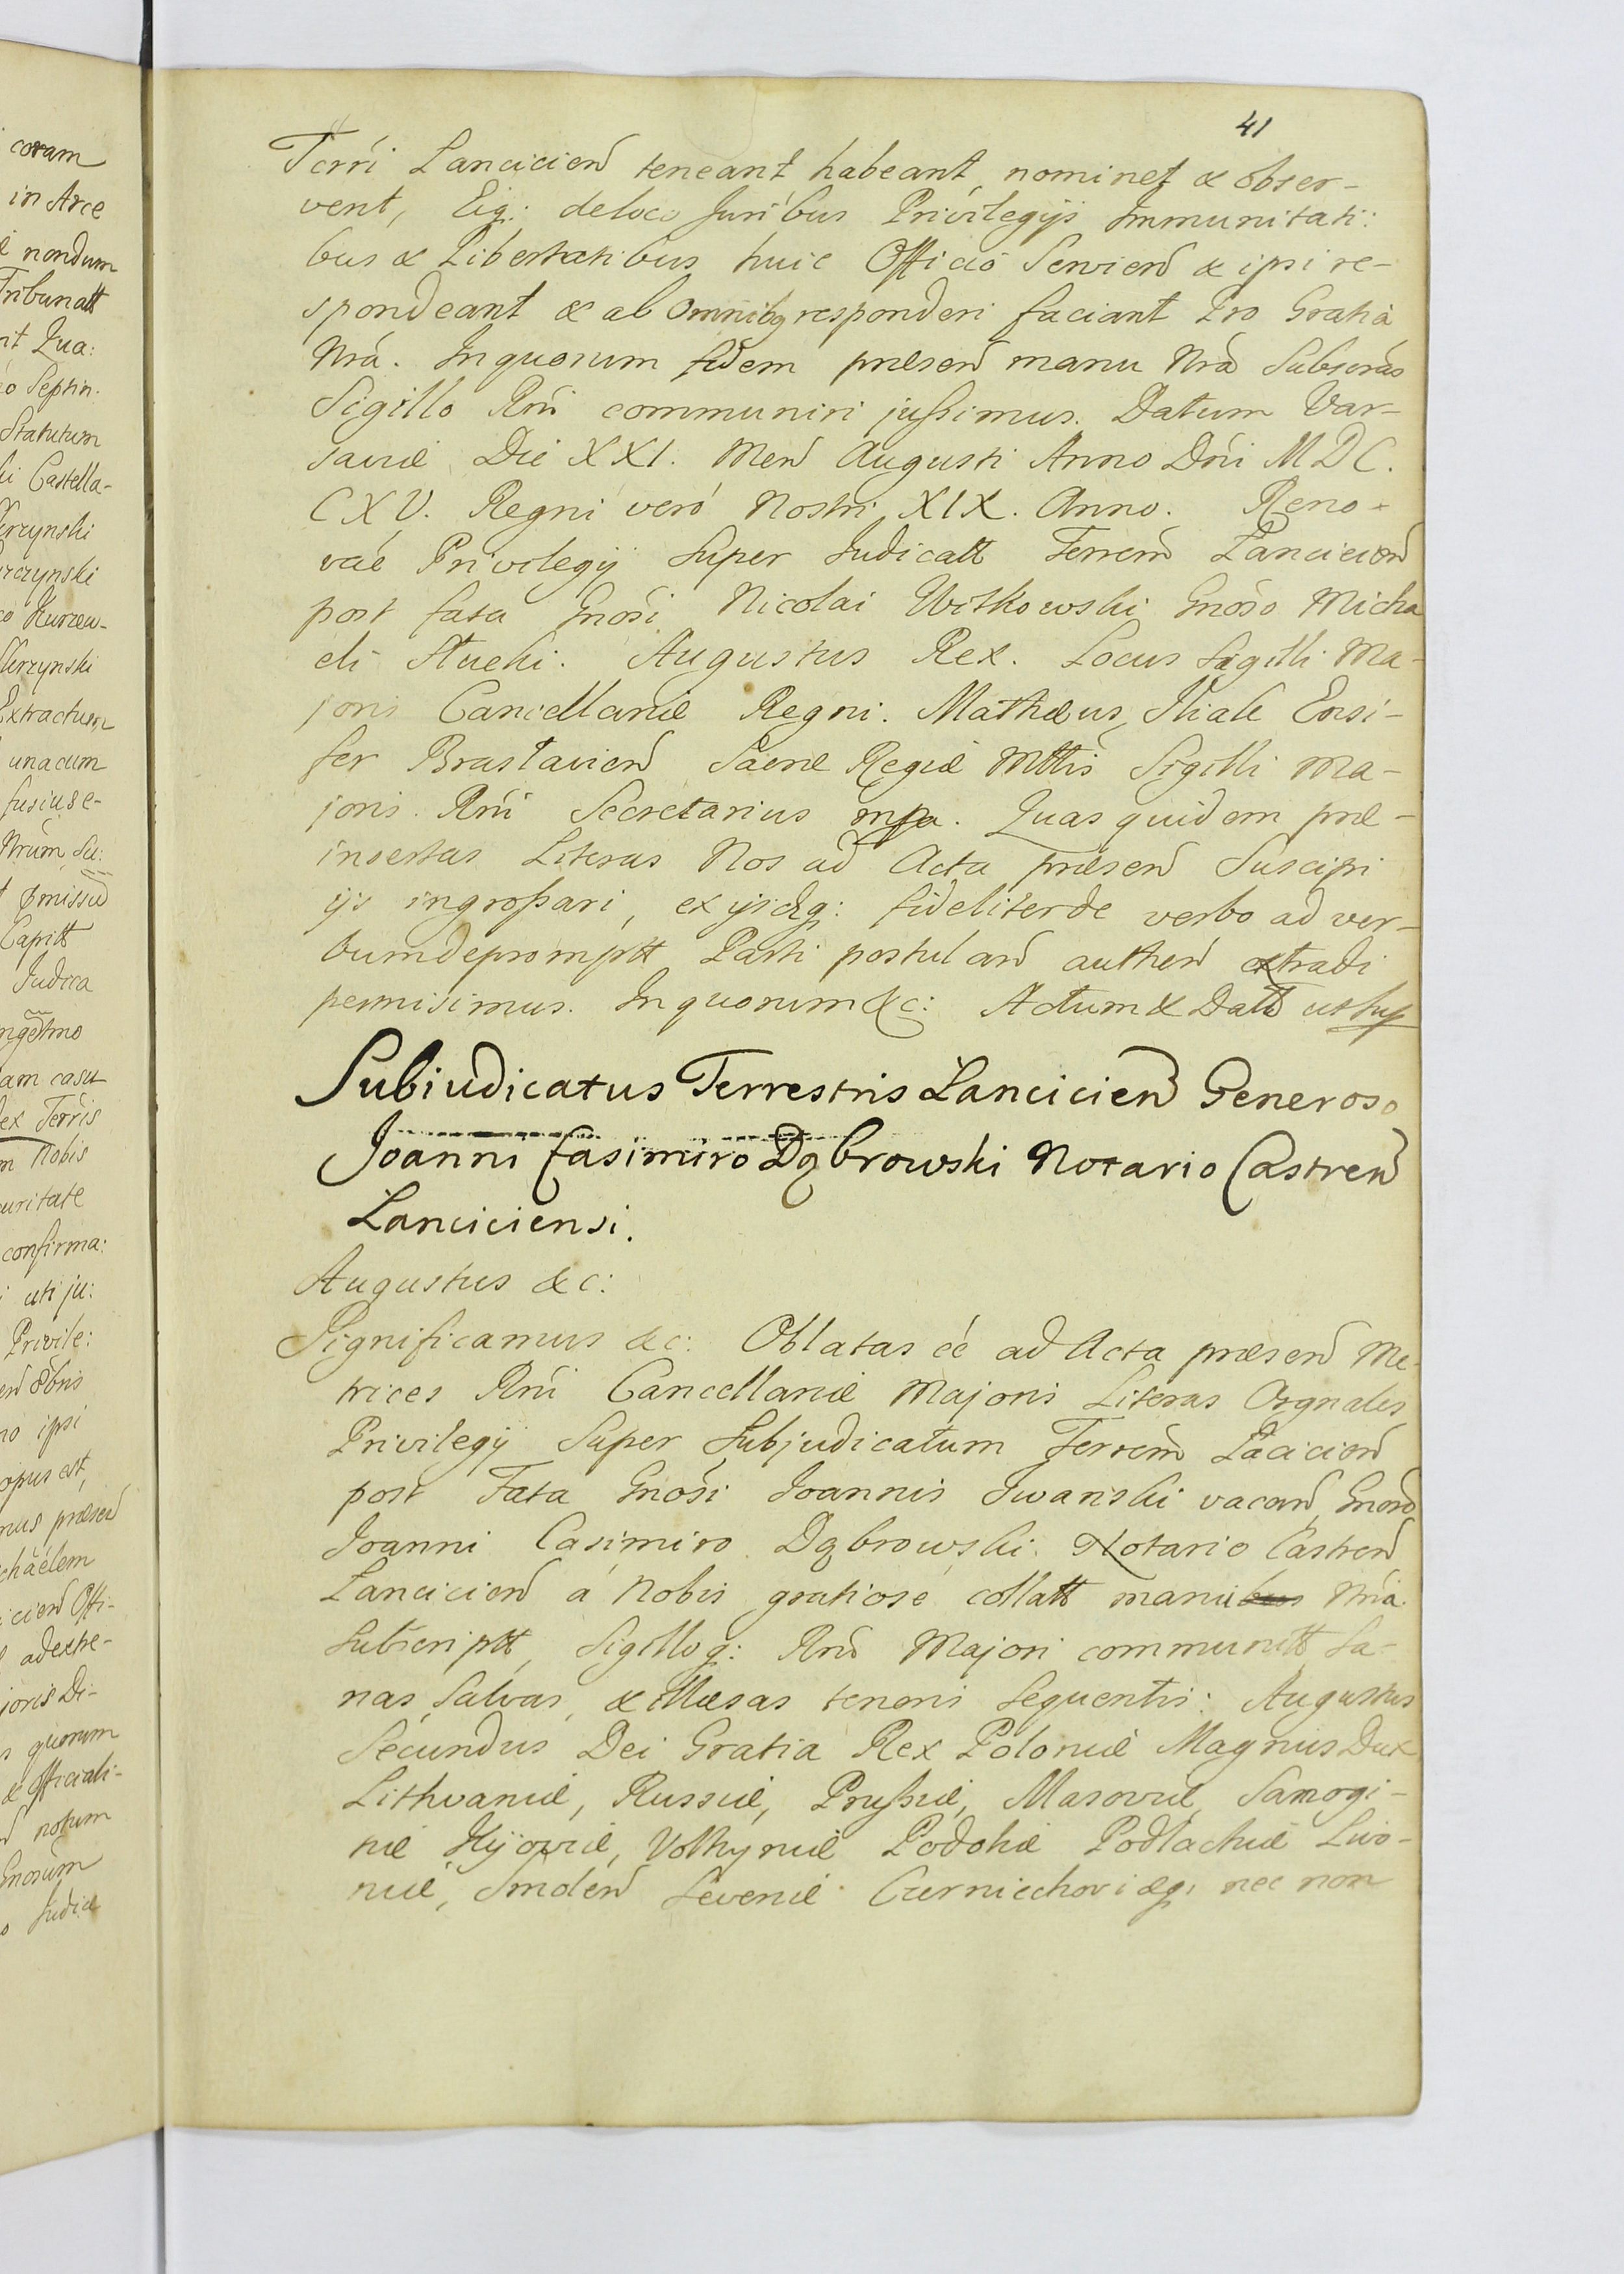 coram
in Arce
nondum
Tribunatt
Septin.
Statutum
Castella-
Extractum
unacum
fusius e-
Capitt
Judica
am casu
Terris
Nobis
confirma:
uti ju:
Privile:
ipsi
opus est,
chaëlem
Offi-
joris Di-
quorum
& Officiali-
notum
41
Terri Lanciciend teneant habeant, nominet & obser-
vent, Eiq: de loco Juribus Privilegijs Immunitati:
bus & Libertatibus huic Officio Serviend & ipsi re-
spondeant & ab omnibq responderi faciant Pro Gratia
Nrá. In quorum fidem præsend manu Nrá Subscras
Sigillo Rni communiri jussimus. Datum Var-
saviæ Die XXI. Mend Augusti Anno Dni MDC.
CXV. Regni veró Nostri XIX. Anno. Reno-
vaé Privilegij Super Judicatt Terrem Lanciciend
post fata Gnosi Nicolai Witkowski Gnoso Micha
eli Stucki. Augustus Rex. Locus Sigilli Ma-
joris Cancellariæ Regni. Mathæus Ensi-
fer Braslaviend Sacræ Regiæ Mttis Sigilli Ma-
joris Rni Secretarius mpa. Quas quidem præ-
insertas Literas Nos ad Acta præsend Suscipi
ijs ingrossari, ex ijsdq: fideliter de verbo ad ver-
bum depromptt Parti postuland authend extradi
permisimus. In quorum &c: Actum & Datt ut sup
Subiudicatus Terrestris Lanciciend Generoso
Joanni Casimiro Dąbrowski Notario Castrend
Lanciciensi.
Augustus &c:
Significamus &c: Oblatas eé ad Acta præsend Me-
trices Rni Cancellariæ Majoris Literas Orgnales
Privilegij Super Subjudicatum Terrem Lăciciend
post Fata Gnosi Joannis Iwanski vacand, Gnoso
Joanni Casimiro Dąbrowski Notario Castrend
Lanciciend á Nobis gratiosé collatt manibus Nrá
Subscriptt, Sigilloq: Rni Majori communitt Sa-
nas, Salvas, & illæsas tenoris Sequentis: Augustus
Secundus Dei Gratia Rex Poloniæ Magnus Dux
Lithvaniæ, Russiæ, Prussiæ, Masoviæ, Samogi-
tiæ Kijoviæ, Volhyniæ Podoliæ Podlachiæ Livo-
niæ, Smolend Severiæ Czerniechoviæq; nec non